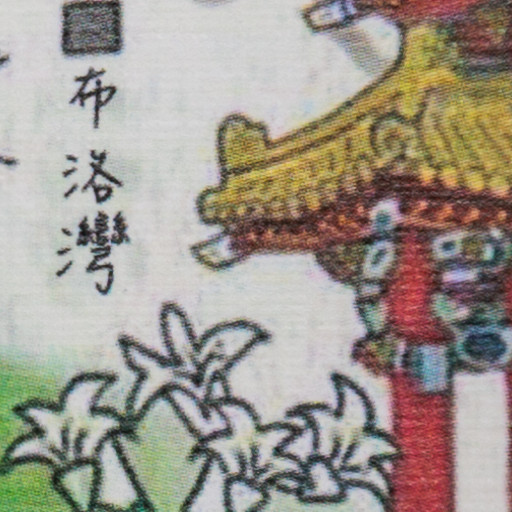 布洛灣